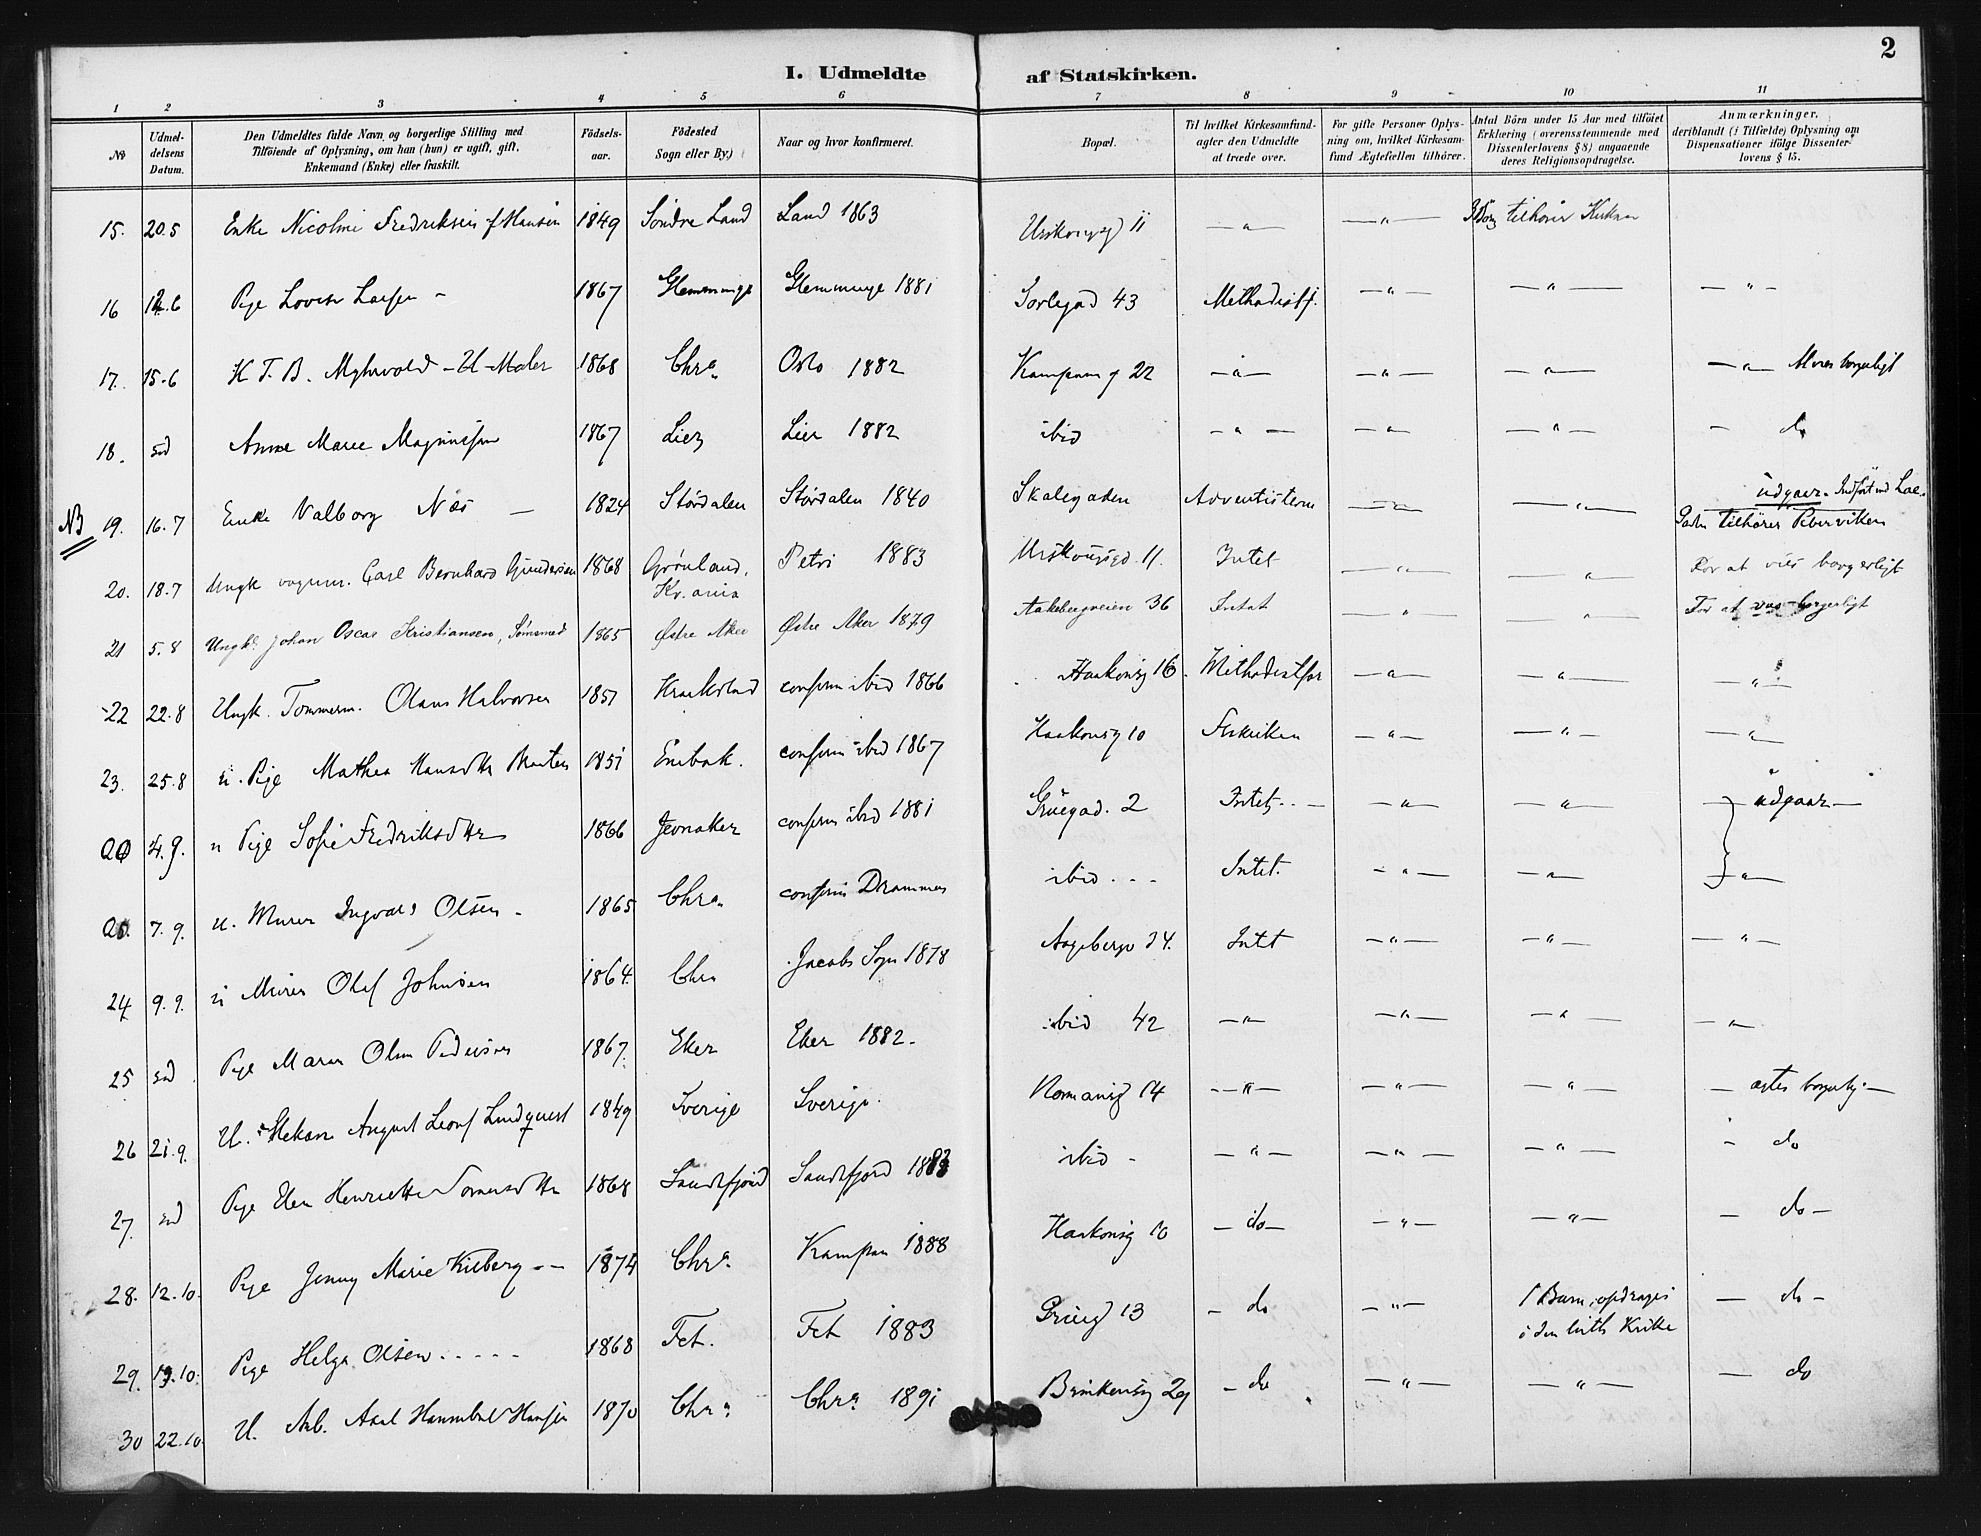 2
I. Udmeldte af Statskirken.
1 2 3 4 5 6 7 8 9 10 11
No
Udmel-
delsens
Datum.
Den Udmeldtes fulde Navn og borgerlige Stilling med
Tilföiende af Oplysning, om han (hun) er ugift, gift,
Enkemand (Enke) eller fraskilt.
Födsels-
aar.
Födested
Sogn eller By.)
Naar og hvor konfirmeret.
Bopæl.
Til hvilket Kirkesamfund-
agter den Udmeldte
at træde over.
For gifte Personer Oplys-
ning om, hvilket Kirkesam-
fund Ægtefællen tilhörer.
Antal Börn under 15 Aar med tilföiet
Erklæring (overensstemmende med
Dissenterlovens § 8) angaaende
deres Religionsopdragelse.
Anmærkninger,
deriblandt (i Tilfælde) Oplysning om
Dispensationer ifölge Dissenter-
lovens § 15.
15. 20.5 Enke Nicoline Fredriksen f Hansen 1849 Söndre Land Land 1863 11 — " — — " — tilhører Kirken
16 12.6 Pige Lovise Larsen - 1867 Glemminge Glemminge 1881 Sorlegad 43 Methodistf. — " — — " — — " —
17. 15.6 K T. B. Myhrvold - U - Maler 1868 Chra. Oslo 1882 Kampen g 22 — " — — " — — " — — " — borgerligt
18. Anne Marie Magnussen 1867 Lier Lier 1882 ibid — " — — " — — " — — do
NB 19. 16.7 Enke Valborg Næs — 1824 Stördalen Stördalen 1840 Skalegaden Adventisterne — " — — " — udgaar. Indført ved
tilhører Pibervikken
20. 18.7 Ungk. Carl Bernhard Gundersen 1868 Grønland, Kr.ania Petri 1883 11. Intet — " — — " — For at vies borgerligt
21 5.8 Ungk. Johan Oscar Kristiansen, 1865 Østre Aker Østre Aker 1879 Aakebergveien 36 Intet — " — — " — For at vies borgerligt
22 22.8 Ungk. Tømmerm. Olaus Halvorsen 1851 Kraakstad confirm ibid 1866 Haakonsg 16. Methodistfor — " — — " — — " —
23. 25.8 u. Pige Mathea Hansdtr 1851 Enebak. confirm ibid 1867 Haakonsg 10 Frikirken — " — — " — — " —
4.9. u Pige Sofie Fredriksdtr 1866 Jevnaker confirm ibid 1881 Grüegad. 2 Intet — " — — " — — udgaar —
7.9. u. Murer Ingvald Olsen - 1865 Chra. confirm Drammen ibid - - - Intet. — " — — " — — " —
24 9.9. u Murer Olaf Johnsen 1864. Chra Jacobs Sogn 1878 34. Intet — " — — " — — " —
25 Pige Maren Olsen Pedersen 1867. Eker Eker 1882. ibid 42 — " — — " — — " — — " —
26 21.9. U. Mekan August Leonf Lindqvist 1849 Sverige Sverige. Normansg 14 — " — — " — — " — — agter borgerlig —
27. Pige Elen Henriette 1868 Sandefjord Sandefjord 1883 ibid - — " — — " — — " — - do
28. 12.10. Pige Jenny Marie Kilberg - - 1874 Chra. Kampen 1888 Haakonsg 10 — do — — " — — " — — do —
29. 19.10. Pige Helga Olsen - - - - - 1868 Fet. Fet 1883 Grüeg 13 - do — " — 1 Barn, opdrages
i den luth. Kirke — do -
30 22.10. U. Arb. Axel Hannibal Hansen 1870 Chra. Chra. 1891 29 - do — " — — " — — do